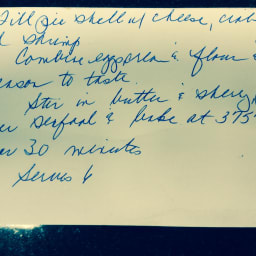 Fill pie shell w/ cheese, crab
d shrimp
Combine eggs, cream & flour &
eason to taste.
Stir in butter & sherry,
er seafood & bake at 375
or 30 minutes
Serves 6